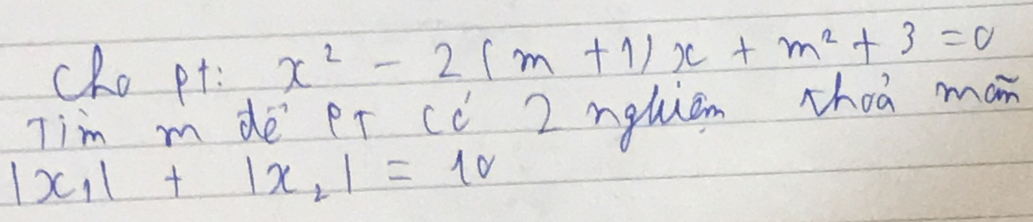 Cho pt: x² - 2(m+1)x + m² + 3 = 0
Tìm m để PT có 2 nghiệm thoả mãn
|x₁| + |x₂| = 10